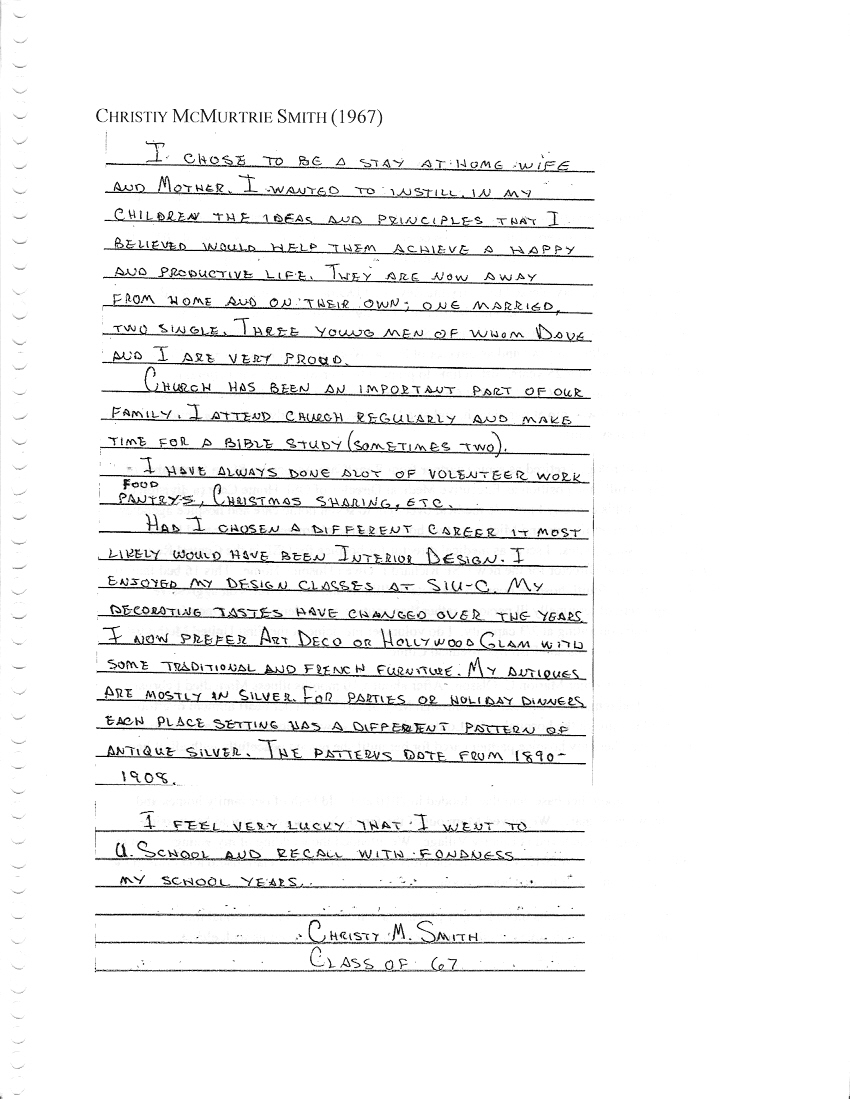 CHRISTIY MCMURTRIE SMITH (1967)
I CHOSE TO BE A STAY AT HOME WIFE
AND MOTHER. I WANTED TO INSTILL IN MY
CHILDREN THE IDEAS AND PRINCIPLES THAT I
BELIEVED WOULD HELP THEM ACHIEVE A HAPPY
AND PRODUCTIVE LIFE. THEY ARE NOW AWAY
FROM HOME AND ON THEIR OWN; ONE MARRIED,
TWO SINGLE. THREE YOUNG MEN OF WHOM DAVE
AND I ARE VERY PROUD.
CHURCH HAS BEEN AN IMPORTANT PART OF OUR
FAMILY. I ATTEND CHURCH REGULARLY AND MAKE
TIME FOR A BIBLE STUDY (SOMETIMES TWO).
I HAVE ALWAYS DONE ALOT OF VOLENTEER WORK
FOOD
PANTRYS, CHRISTMAS SHARING, ETC.
HAD I CHOSEN A DIFFERENT CAREER IT MOST
LIKELY WOULD HAVE BEEN INTERIOR DESIGN. I
ENJOYED MY DESIGN CLASSES AT SIU-C. MY
DECORATING TASTES HAVE CHANGED OVER THE YEARS
I NOW PREFER ART DECO OR HOLLYWOOD GLAM WITH
SOME TRADITIONAL AND FRENCH FURNITURE. MY ANTIQUES
ARE MOSTLY IN SILVER. FOR PARTIES OR HOLIDAY DINNERS
EACH PLACE SETTING HAS A DIFFERENT PATTERN OF
ANTIQUE SILVER. THE PATTERNS DATE FROM 1890-
1908.
I FEEL VERY LUCKY THAT I WENT TO
U. SCHOOL AND RECALL WITH FONDNESS
MY SCHOOL YEARS.
CHRISTY M. SMITH
CLASS OF 67